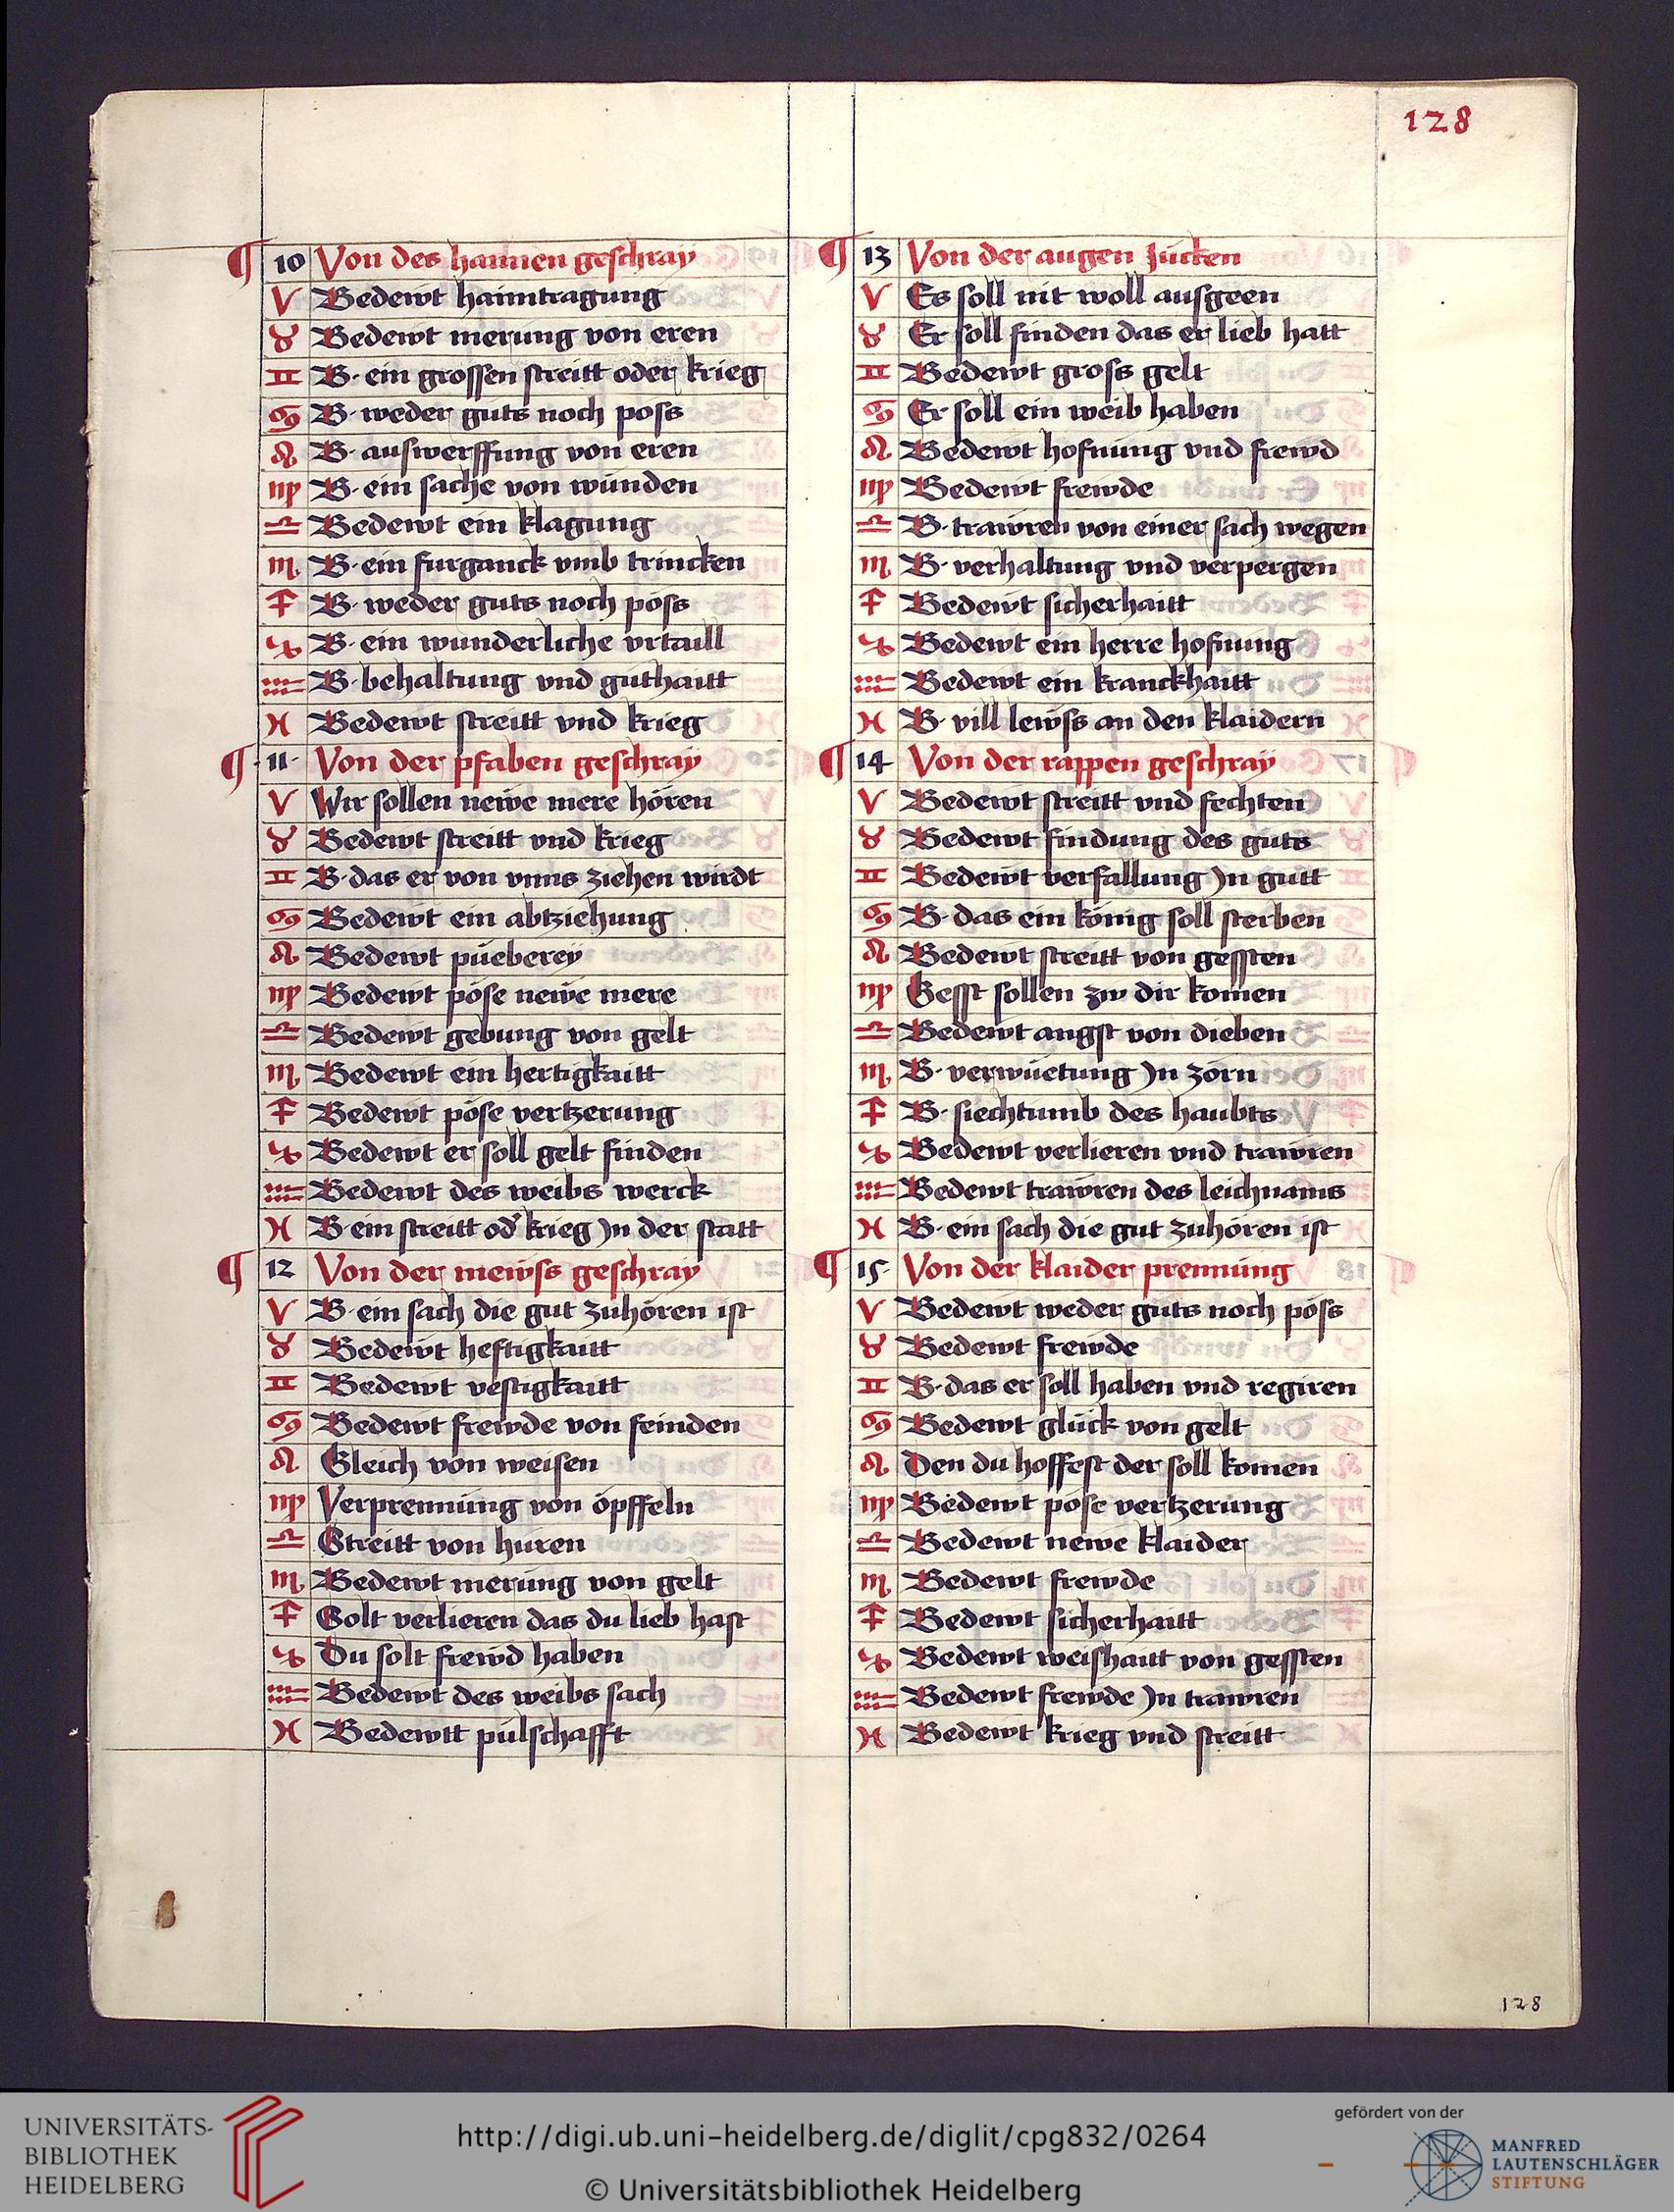 128
10 Von des hannen geschray
♈ Bedewt haimtragung
♉ Bedewt merung von eren
♊ B· ein grossen streitt oder krieg
♋ B· weder guts noch poss
♌ B· auswerffung von eren
♍ B· ein sache von wunden
♎ Bedewt ein klagung
♏ B· ein furganck vmb trincken
♐ B· weder guts noch poss
♑ B· ein wunderliche vrtaill
♒ B· behaltung vnd guthaitt
♓ Bedewt streitt vnd krieg
·11· Von der pfaben geschray
♈ Wir sollen newe mere hören
♉ Bedewt streitt vnd krieg
♊ B· das er von vnns ziehen wirdt
♋ Bedewt ein abtziehung
♌ Bedewt püeberey
♍ Bedewt pöse newe mere
♎ Bedewt gebung von gelt
♏ Bedewt ein hertigkaitt
♐ Bedewt pöse vertzerung
♑ Bedewt er soll gelt finden
♒ Bedewt des weibs werck
♓ B· ein streitt od' krieg Jn der statt
12 Von der mewss geschray
♈ B· ein sach die gut zuhören ist
♉ Bedewt heftigkaitt
♊ Bedewt vestigkaitt
♋ Bedewt frewde von feinden
♌ Gleich von weisen
♍ Verprennung von öpffeln
♎ Streitt von huren
♏ Bedewt merung von gelt
♐ Solt verlieren das du lieb hast
♑ Du solt frewd haben
♒ Bedewt des weibs sach
♓ Bedewtt pulschafft
13 Von der augen Jucken
♈ Es soll nit woll ausgeen
♉ Er soll finden das er lieb hatt
♊ Bedewt gross gelt
♋ Er soll ein weib haben
♌ Bedewt hofnung vnd frewd
♍ Bedewt frewde
♎ B· trawren von einer sach wegen
♏ B· verhaltung vnd verpergen
♐ Bedewt sicherhaitt
♑ Bedewt ein herre hofnung
♒ Bedewt ein kranckhaitt
♓ B· vill lewss an den klaidern
14 Von der rappen geschray
♈ Bedewt streitt vnd fechten
♉ Bedewt findung des guts
♊ Bedewt verfallung Jn gutt
♋ B· das ein könig soll sterben
♌ Bedewt streitt von gessten
♍ Gesst sollen zw dir komen
♎ Bedewt angst von dieben
♏ B· verwüetung Jn zorn
♐ B· siechtumb des haubts
♑ Bedewt verlieren vnd trawren
♒ Bedewt trawren des leichnams
♓ B· ein sach die gut zuhören ist
·15· Von der klaider prennung
♈ Bedewt weder guts noch pöss
♉ Bedewt frewde
♊ B· das er soll haben vnd regiren
♋ Bedewt glück von gelt
♌ Den du hoffest der soll komen
♍ Bedewt pöse vertzerung
♎ Bedewt newe klaider
♏ Bedewt frewde
♐ Bedewt sicherhaitt
♑ Bedewt weishaitt von gessten
♒ Bedewt frewde Jn trawren
♓ Bedewt krieg vnd streitt
128
UNIVERSITÄTS-
BIBLIOTHEK
HEIDELBERG
http://digi.ub.uni-heidelberg.de/diglit/cpg832/0264
© Universitätsbibliothek Heidelberg
gefördert von der
MANFRED
LAUTENSCHLÄGER
STIFTUNG